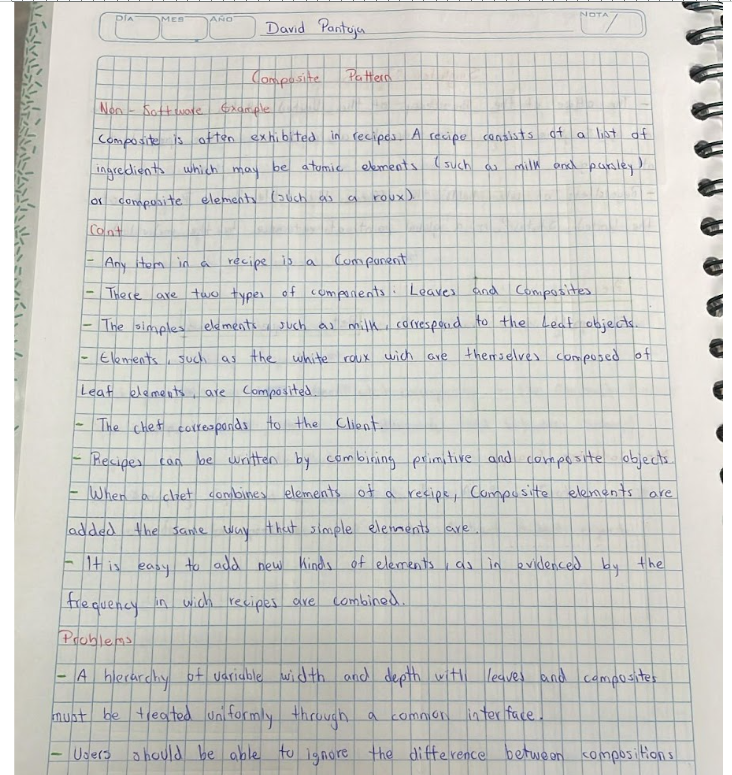 DÍA MES AÑO David Pantoja NOTA
Composite Pattern
Non - Software Example
Composite is often exhibited in recipes. A recipe consists of a list of
ingredients which may be atomic elements (such as milk and parsley)
or composite elements (such as a roux)
Cont
- Any item in a recipe is a Component
- There are two types of components. Leaves and Composites
- The simples elements, such as milk, correspond to the Leaf objects.
- Elements, such as the white roux wich are themselves composed of
Leaf elements, are Composited.
- The chef corresponds to the Client.
- Recipes can be written by combining primitive and composite objects
- When a chef combines elements of a recipe, Composite elements are
added the same way that simple elements are.
- It is easy to add new kinds of elements, as in evidenced by the
frequency in wich recipes are combined.
Problems
- A hierarchy of variable width and depth with leaves and composites
must be treated uniformly through a common interface.
- Users should be able to ignore the difference between compositions